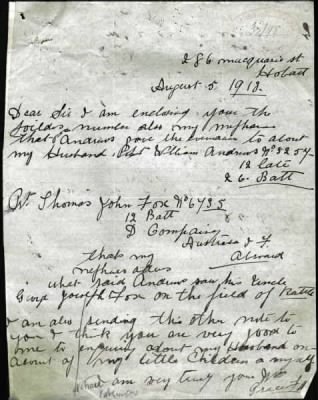 286 macquarie st
Hobart
August 5 1918.
Dear Sir I am enclosing you the
number also my nephew
that Andrews gave the evidence to about
my Husband Pvt William Andrews No 5257
12 late
26 Batt
Pvt Thomas John Fox No 6735
12 Batt
D Company
Australia I F.
Abroad
thats my
nephews adres
what said Andrews saw his Uncle
Joseph Fox on the field of Battle
I am also sending this other note to
you I think you are very good to
me to enquire about my Husband on
acount of my little Children & myself
I am very truly yours